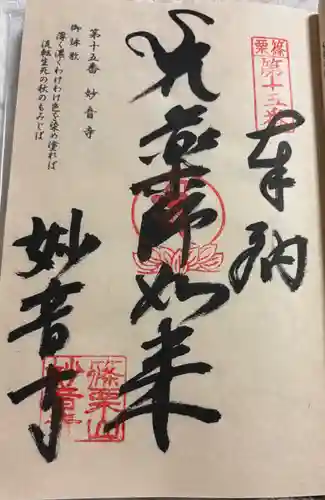 篠栗
第十五番
奉納
薬師如来
妙音寺
篠栗山
妙音寺
第十五番 妙音寺
御詠歌
薄く濃くわけわけ色を染め塗れば
流転生死の秋のもみじば